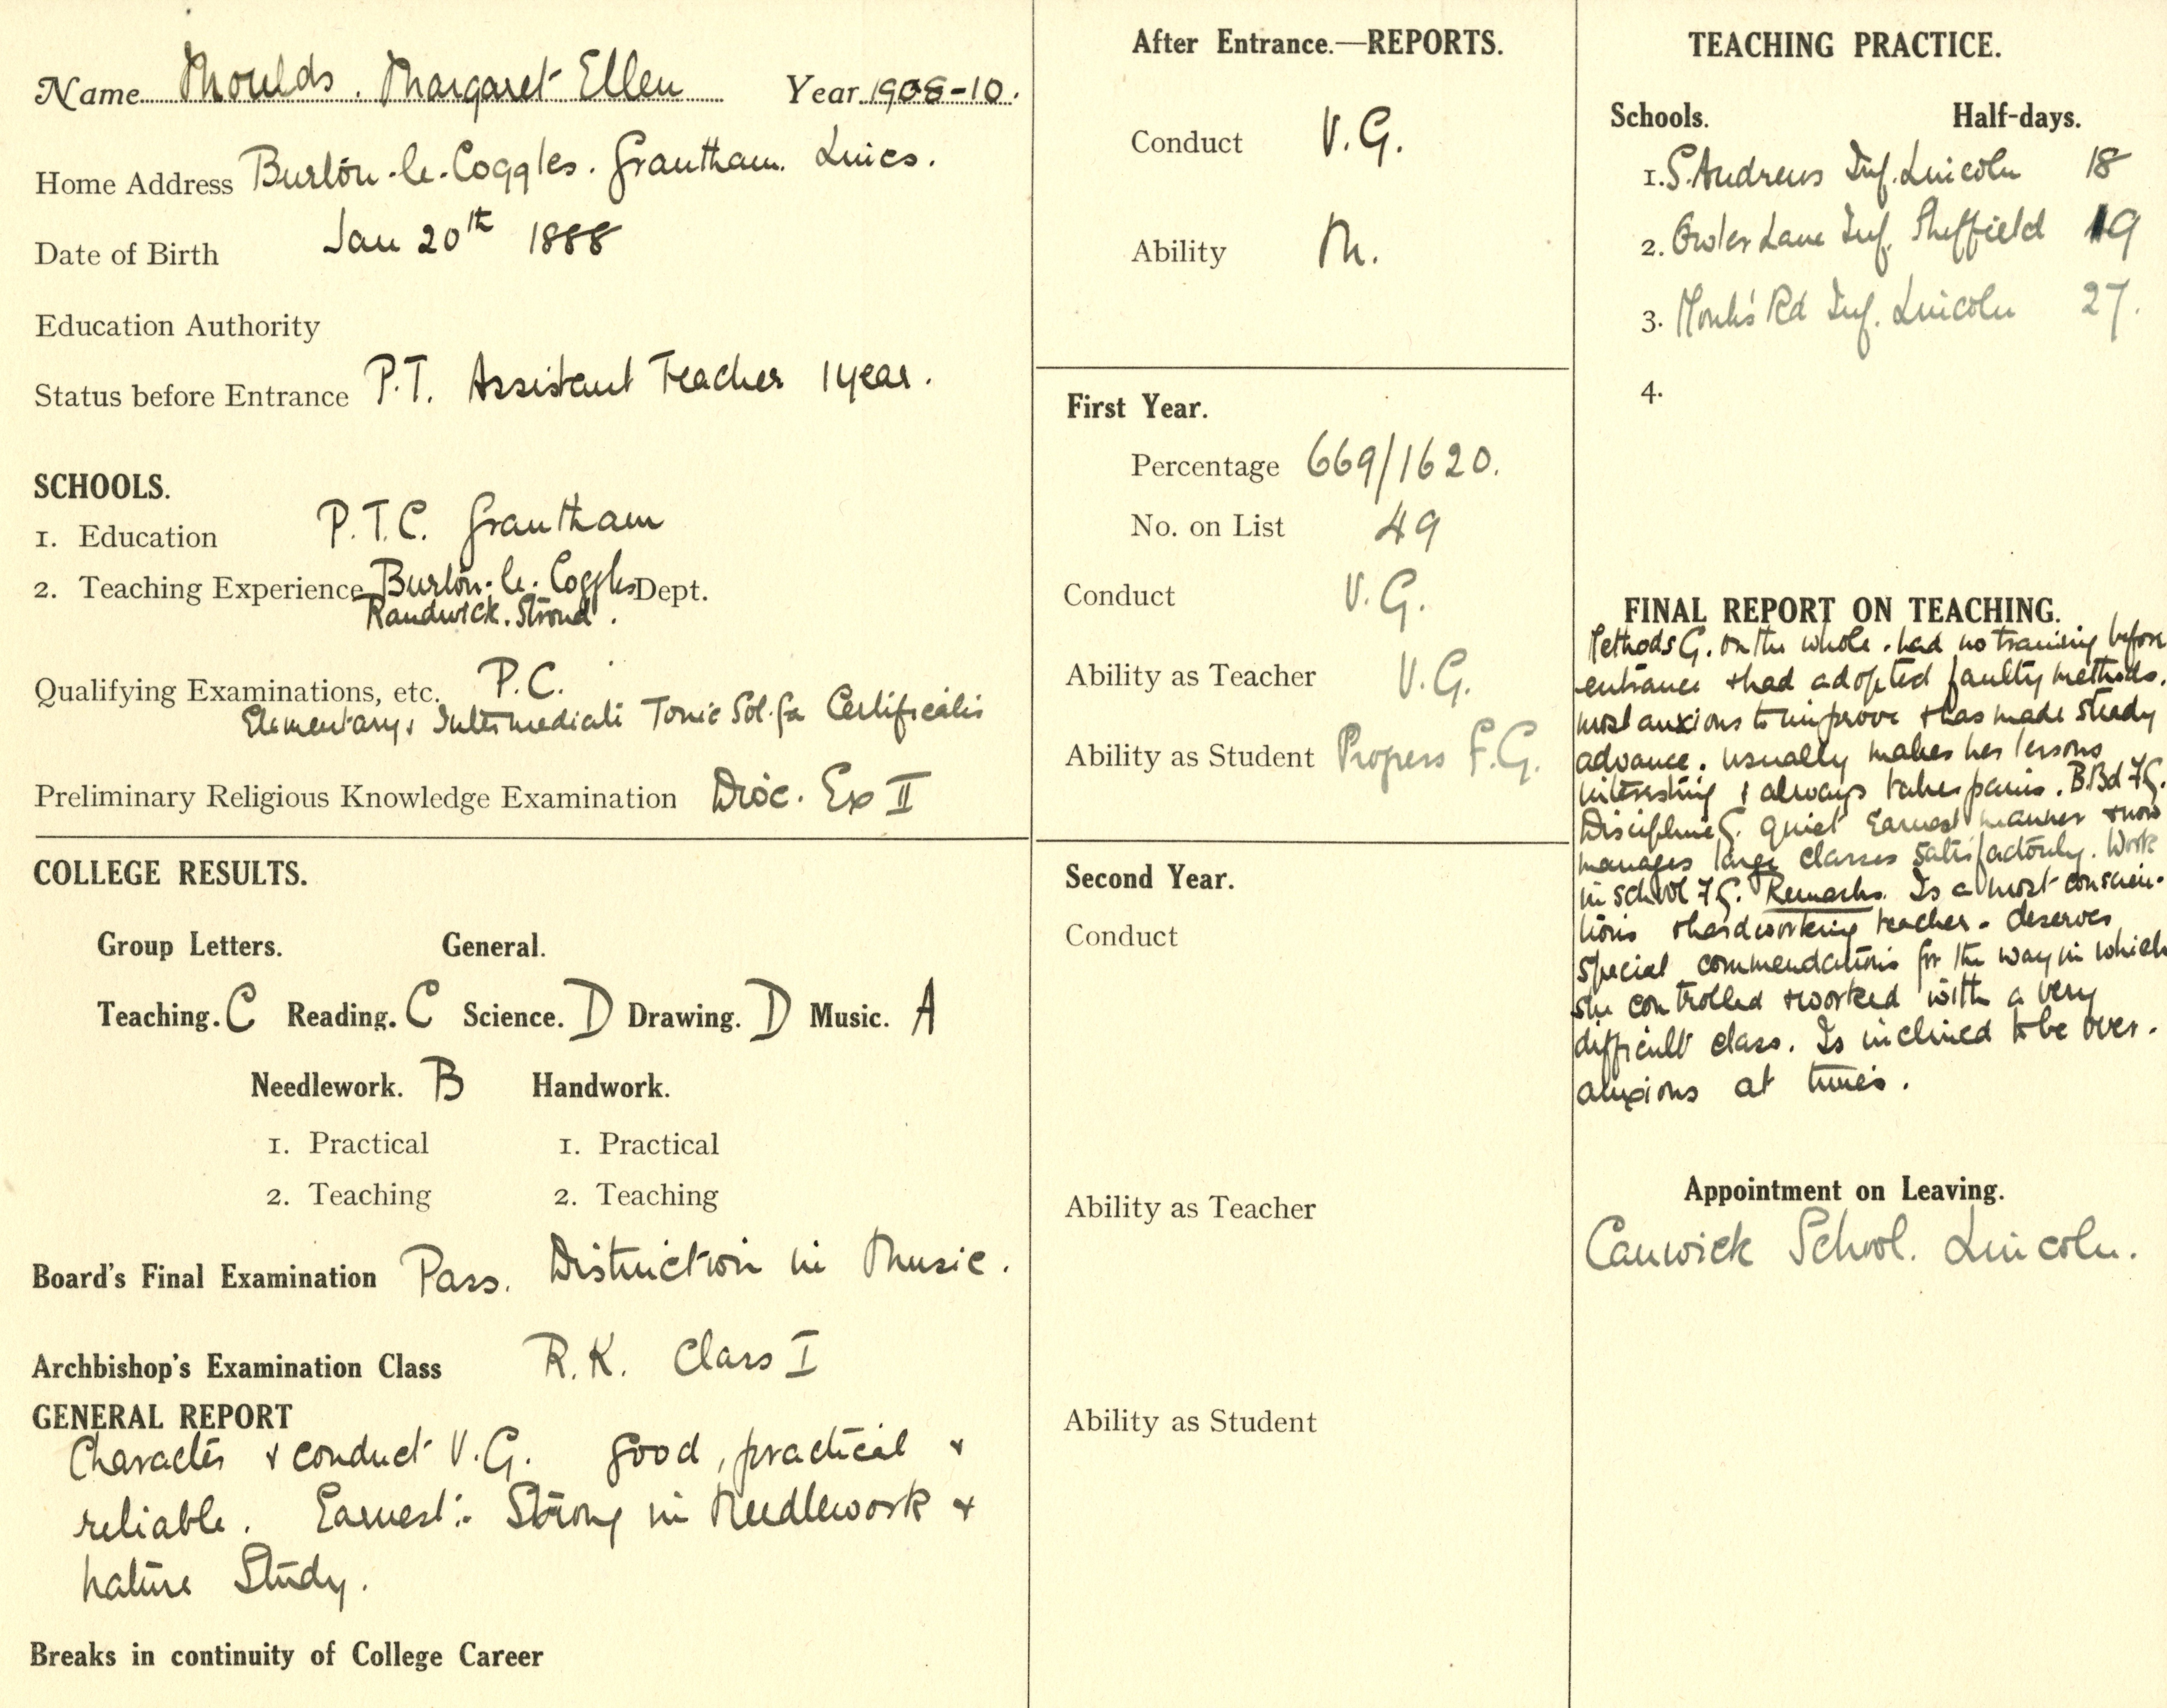 Name Moulds. Margaret Ellen Year 1908-10.
Home Address Burton-le-Coggles. Grantham. Lincs.
Date of Birth Jan 20th 1888
Education Authority
Status before Entrance P.T. Assistant Teacher 1 year.
SCHOOLS.
1. Education P.T.C. Grantham
2. Teaching Experience Burton-le-Coggles Dept.
Randwick. Stroud.
Qualifying Examinations, etc. P.C.
Elementary & Intermediate Tonic Sol-fa Certificates
Preliminary Religious Knowledge Examination Dioc. Ex II
COLLEGE RESULTS.
Group Letters. General.
Teaching. C Reading. C Science. D Drawing. D Music. A
Needlework. B Handwork.
1. Practical 1. Practical
2. Teaching 2. Teaching
Board's Final Examination Pass. Distinction in Music.
Archbishop's Examination Class R.K. Class I
GENERAL REPORT
Character & conduct V.G. Good, practical &
reliable. Earnest:- Strong in Needlework &
nature Study.
Breaks in continuity of College Career
After Entrance.—REPORTS.
Conduct V.G.
Ability M.
First Year.
Percentage 669/1620.
No. on List 49
Conduct V.G.
Ability as Teacher V.G.
Ability as Student Progress F.G.
Second Year.
Conduct
Ability as Teacher
Ability as Student
TEACHING PRACTICE.
Schools. Half-days.
1. S. Andrews Inf. Lincoln 18
2. Owler Lane Inf. Sheffield 19
3. Monk's Rd Inf. Lincoln 27.
4.
FINAL REPORT ON TEACHING.
Methods G. on the whole. had no training before
entrance & had adopted faulty methods.
most anxious to improve & has made steady
advance. usually makes her lessons
interesting & always takes pains. B.Bd F.G.
Discipline G. quiet earnest manner & now
manages large classes satisfactorily. Work
in school F.G. Remarks. Is a most conscien-
tious & hardworking teacher - deserves
special commendations for the way in which
she controlled & worked with a very
difficult class. Is inclined to be over-
anxious at times.
Appointment on Leaving.
Canwick School. Lincoln.